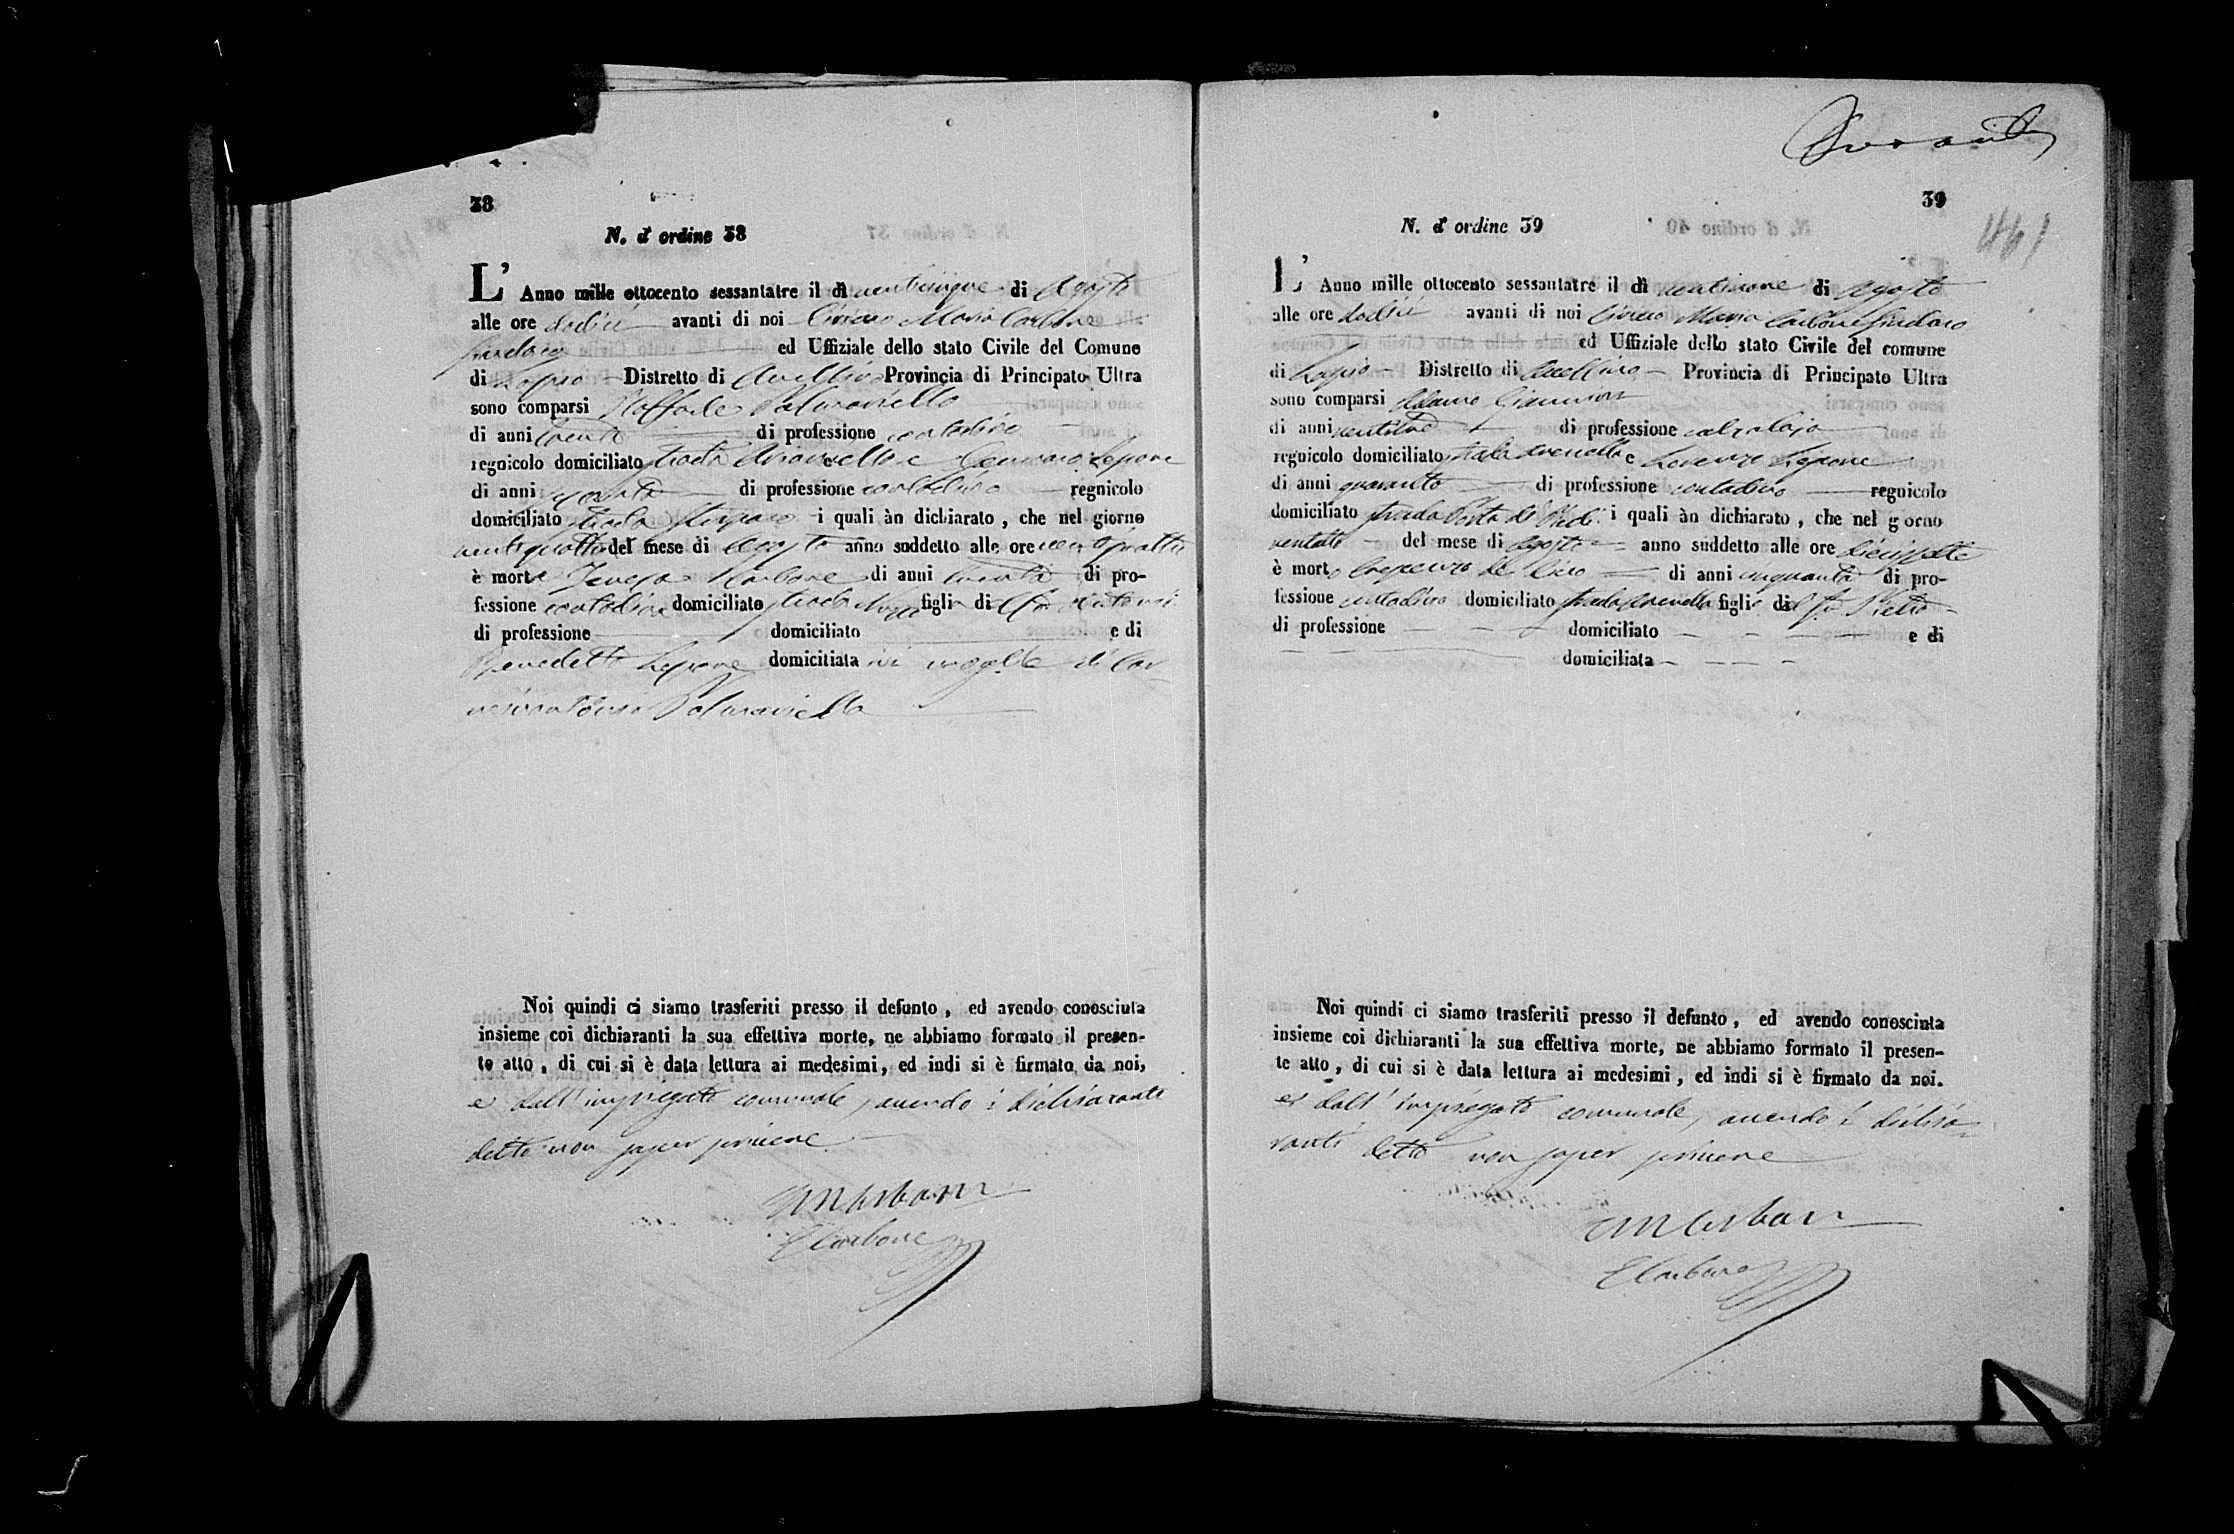 38
N. d' ordine 38
L' Anno mille ottocento sessantatre il dì venticinque di Agosto
alle ore dodici avanti di noi Ciriaco Maria Carbone
Sindaco ed Uffiziale dello stato Civile del Comune
di Lapio Distretto di Avellino Provincia di Principato Ultra
sono comparsi Raffaele Palmariello
di anni trenta di professione contadino
regnicolo domiciliato strada e Gennaro Lepore
di anni di professione contadino regnicolo
domiciliato strada i quali àn dichiarato, che nel giorno
ventiquattro del mese di Agosto anno suddetto alle ore ventiquattro
è morta Teresa Carbone di anni trenta di pro-
fessione contadina domiciliato strada figlia di
di professione domiciliato e di
Benedetta Lepore domiciliata ivi moglie di Car-
Palmariello
Noi quindi ci siamo trasferiti presso il defunto, ed avendo conosciuta
insieme coi dichiaranti la sua effettiva morte, ne abbiamo formato il presen-
te atto, di cui si è data lettura ai medesimi, ed indi si è firmato da noi,
e dall'impiegato comunale, avendo i dichiaranti
detto non saper scrivere
CMCarbone
Carbone
39
N. d' ordine 39
L' Anno mille ottocento sessantatre il dì ventinove di Agosto
alle ore dodici avanti di noi Ciriaco Maria Carbone Sindaco
ed Uffiziale dello stato Civile del comune
di Lapio Distretto di Avellino Provincia di Principato Ultra
sono comparsi
di anni di professione calzolajo
regnicolo domiciliato strada e Lorenzo Lepore
di anni quaranta di professione contadino regnicolo
domiciliato strada Porta di i quali àn dichiarato, che nel giorno
ventotto del mese di Agosto anno suddetto alle ore diciassette
è morto di anni cinquanta di pro-
fessione contadino domiciliato strada figlio del fu Pietro
di professione domiciliato e di
domiciliata
Noi quindi ci siamo trasferiti presso il defunto, ed avendo conosciuta
insieme coi dichiaranti la sua effettiva morte, ne abbiamo formato il presen-
te atto, di cui si è data lettura ai medesimi, ed indi si è firmato da noi.
e dall'impiegato comunale, avendo i dichia-
ranti detto non saper scrivere
CMCarbone
Carbone